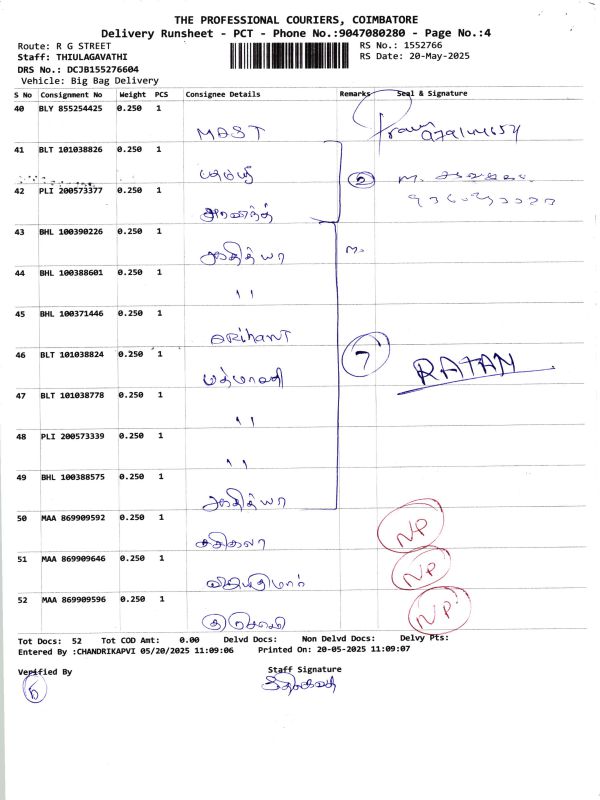 THE PROFESSIONAL COURIERS, COIMBATORE
Delivery Runsheet - PCT - Phone No.:9047080280 - Page No.:4
Route: R G STREET
RS No.: 1552766
Staff: THIULAGAVATHI
RS Date: 20-May-2025
DRS No.: DCJB155276604
Vehicle: Big Bag Delivery
S No Consignment No Weight PCS Consignee Details Remarks Seal & Signature
40 BLY 855254425 0.250 1
MAST
41 BLT 101038826 0.250 1
2
42 PLI 200573377 0.250 1
43 BHL 100390226 0.250 1
ஆதித்யா
m.
44 BHL 100388601 0.250 1
''
45 BHL 100371446 0.250 1
ARihanT
46 BLT 101038824 0.250 1
பத்மாவதி
7 RATAN
47 BLT 101038778 0.250 1
''
48 PLI 200573339 0.250 1
''
49 BHL 100388575 0.250 1
ஆதித்யா
50 MAA 869909592 0.250 1
சசிகலா
NP
51 MAA 869909646 0.250 1
NP
52 MAA 869909596 0.250 1
NP
Tot Docs: 52 Tot COD Amt: 0.00 Delvd Docs: Non Delvd Docs: Delvy Pts:
Entered By :CHANDRIKAPVI 05/20/2025 11:09:06 Printed On: 20-05-2025 11:09:07
Verified By
Staff Signature